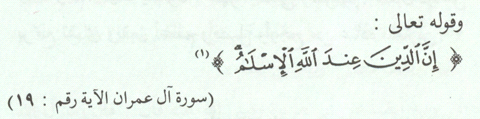 وقوله تعالى :
﴿ إِنَّ ٱلدِّينَ عِندَ ٱللَّهِ ٱلْإِسْلَٰمُ ﴾ (١)
(سورة آل عمران الآية رقم : ١٩)